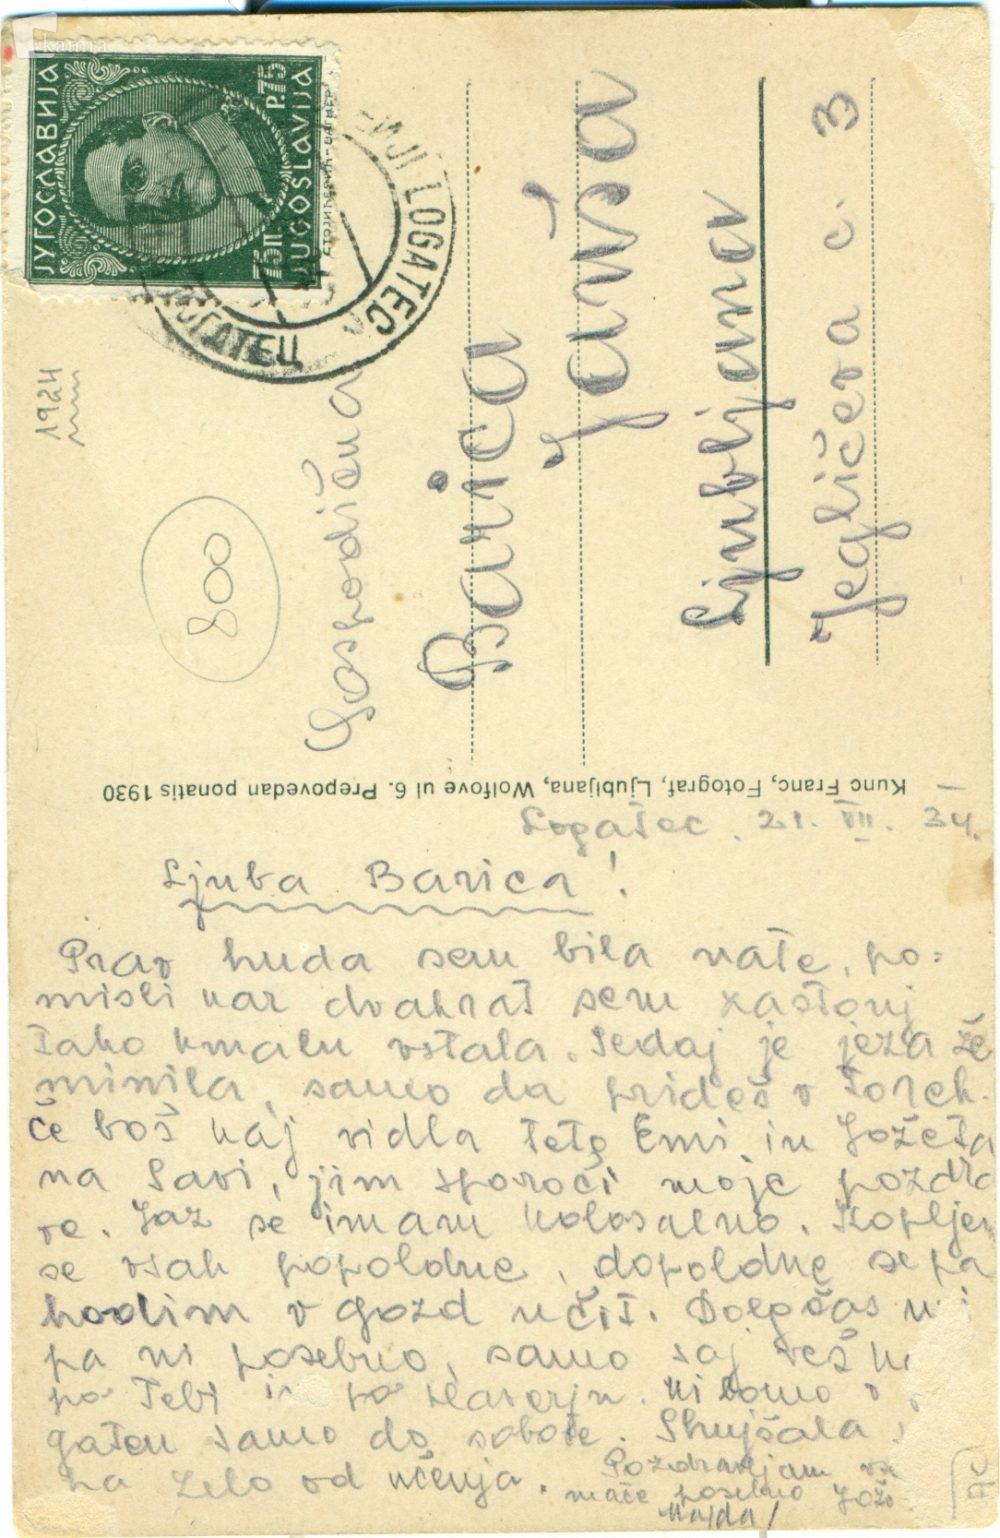 kamra
ЈУГОСЛАВИЈА
75П P.75
JUGOSLAVIJA
LOGATEC
ЛОГАТЕЦ
1924
800
Gospodična
Barica
Janša
Ljubljana
Jegličeva c. 3
Kunc Franc, Fotograf, Ljubljana, Wolfove ul 6. Prepovedan ponatis 1930
Logatec, 21. VII. 34.
Ljuba Barica!
Prav huda sem bila nate, po=
misli kar dvakrat sem zastonj
tako kmalu vstala. Sedaj je jeza že
minila, samo da prideš v torek.
Če boš kaj vidla teto Emi in Jožeta
na Savi, jim sporoči moje pozdra
ve. Jaz se imam kolosalno. Kopljem
se vsak popoldne, dopoldne se pa
hodim v gozd učit. Dolgčas mi
pa ni posebno, samo saj veš
po Tebi in po klavirju. Mi bomo v
gatcu samo do sobote. Shujšala
na zelo od učenja. Pozdravljam
mače posebno Jožo
Majda!